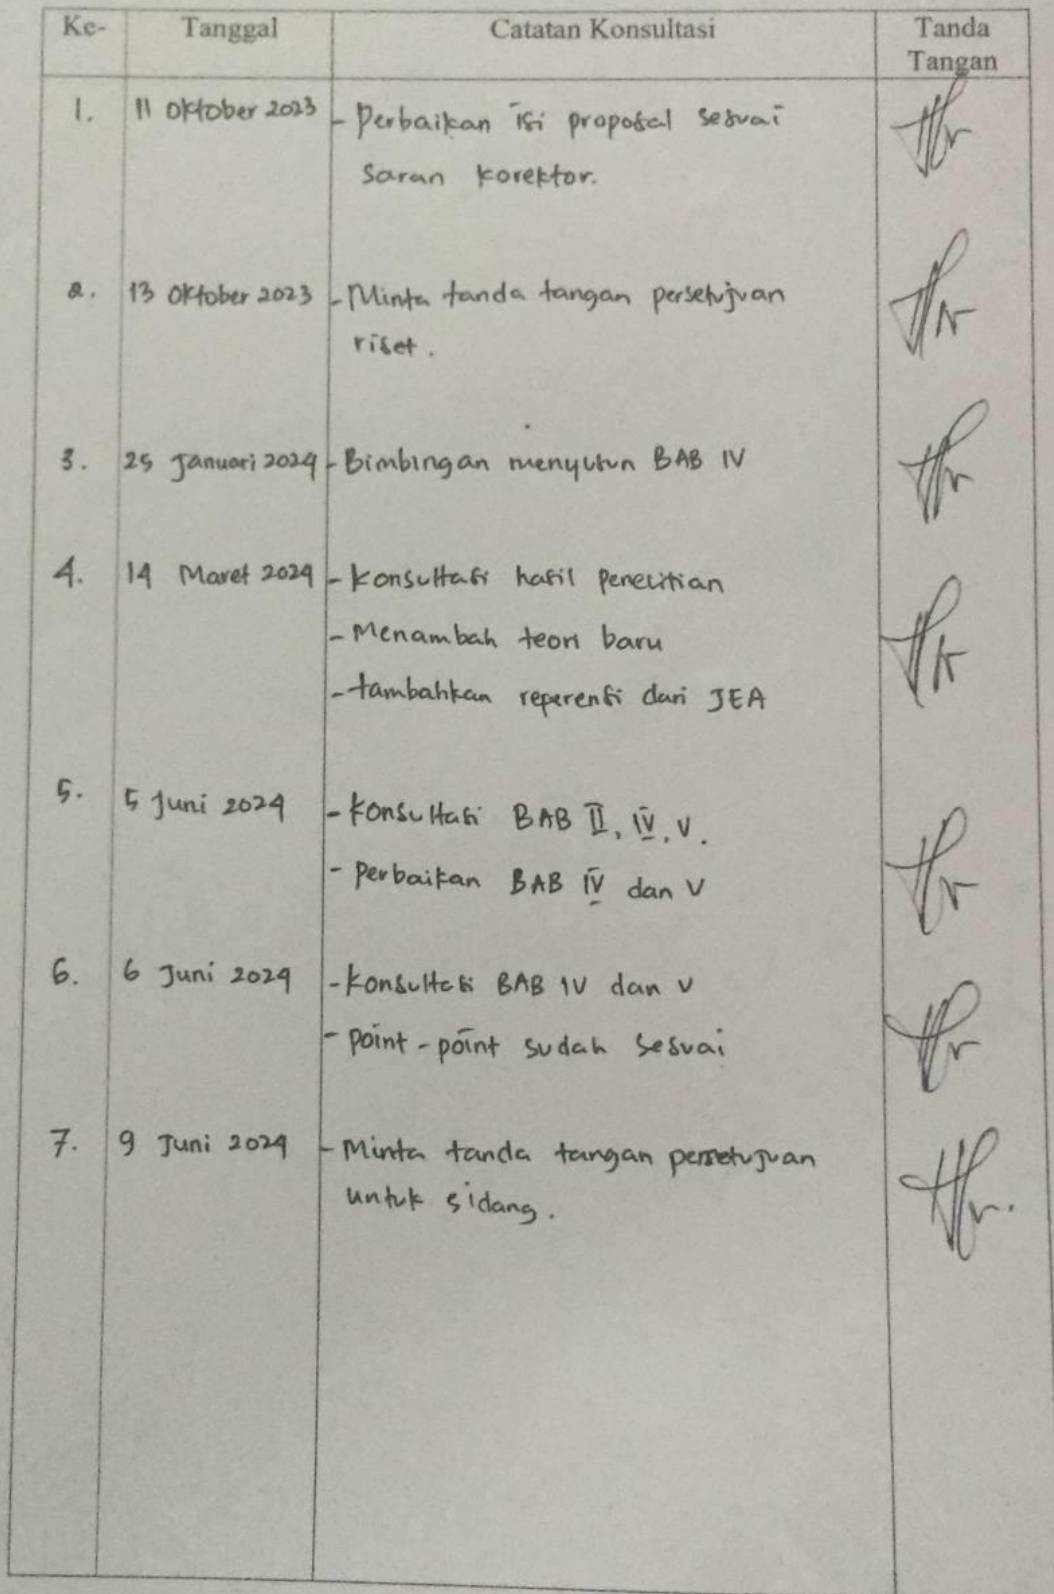 Ke- Tanggal Catatan Konsultasi Tanda
Tangan
1. 11 Oktober 2023 - Perbaikan isi proposal sesuai
saran korektor.
2. 13 Oktober 2023 - Minta tanda tangan persetujuan
riset.
3. 25 Januari 2024 - Bimbingan menyusun BAB IV
4. 14 Maret 2024 - Konsultasi hasil penelitian
- Menambah teori baru
- tambahkan reperensi dari JEA
5. 5 Juni 2024 - Konsultasi BAB II, IV, V.
- Perbaikan BAB IV dan V
6. 6 Juni 2024 - Konsultasi BAB IV dan V
- point-point sudah sesuai
7. 9 Juni 2024 - Minta tanda tangan persetujuan
untuk sidang.